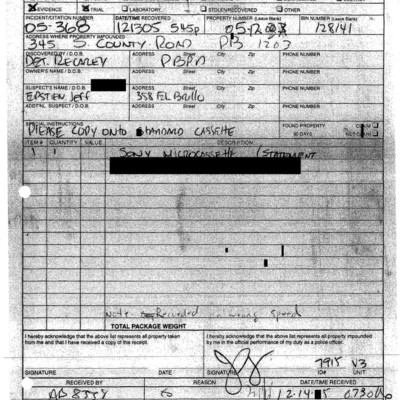 EVIDENCE TRIAL LABORATORY STOLEN/RECOVERED OTHER
INCIDENT/CITATION NUMBER DATE/TIME RECOVERED PROPERTY NUMBER (Leave Blank) BIN NUMBER (Leave Blank)
05-368 121305 545p 128141
ADDRESS WHERE PROPERTY IMPOUNDED
345 S. COUNTY ROAD PB
DISCOVERED BY / D.O.B. ADDRESS Street City Zip PHONE NUMBER
DET. RECAREY PBPD
OWNER'S NAME / D.O.B. ADDRESS Street City Zip PHONE NUMBER
SUSPECT'S NAME / D.O.B. ADDRESS Street City Zip PHONE NUMBER
EPSTIEN Jeff 358 EL Brillo
ADDT'NL. SUSPECT / D.O.B. ADDRESS Street City Zip PHONE NUMBER
SPECIAL INSTRUCTIONS FOUND PROPERTY
PLEASE COPY ONTO STANDARD CASSETTE 90 DAYS
ITEM # QUANTITY VALUE DESCRIPTION
1 1 SONY MICROCASSETTE /STATEMENT
Note Recorded on wrong speed
TOTAL PACKAGE WEIGHT
I hereby acknowledge that the above list represents all property taken from me and that I have received a copy of this receipt.
I hereby acknowledge that the above list represents all property impounded by me in the official performance of my duty as a police officer.
7915 V3
SIGNATURE DATE SIGNATURE ID# DATE
RECEIVED BY REASON DATE/TIME RECEIVED
12-14 0730